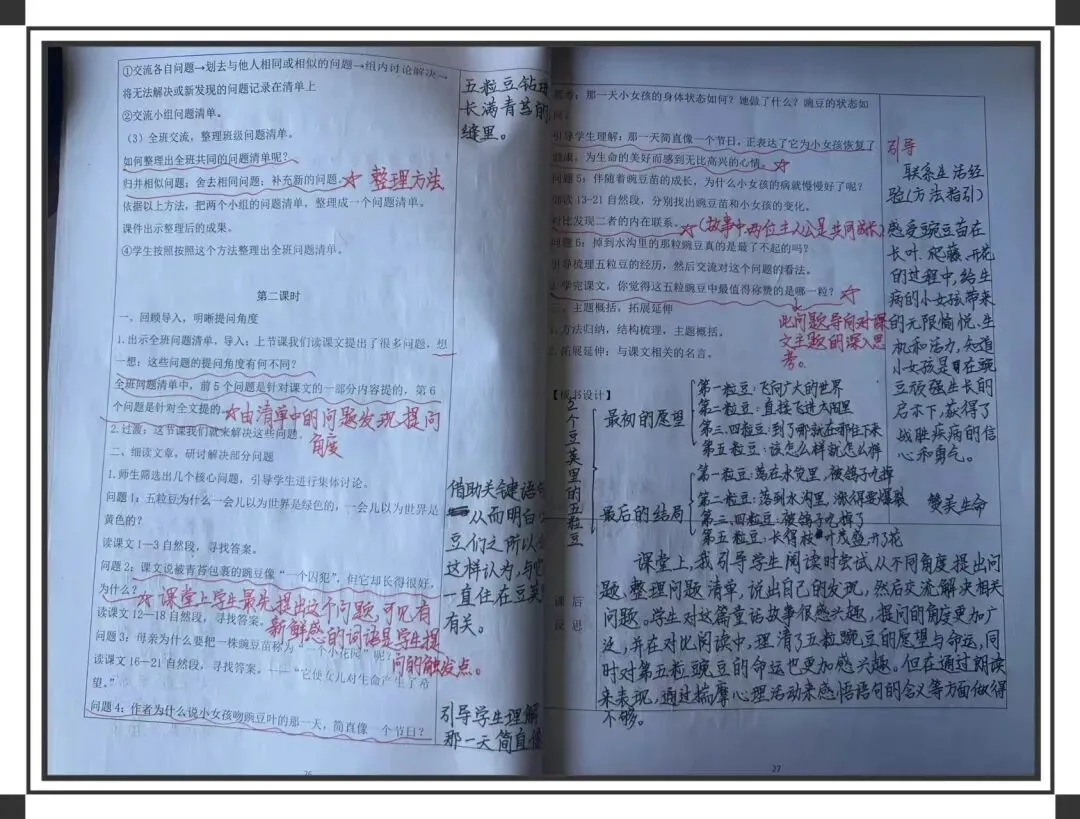 ①交流各自问题→划去与他人相同或相似的问题→组内讨论解决→
将无法解决或新发现的问题记录在清单上
②交流小组问题清单。
（3）全班交流，整理班级问题清单。
如何整理出全班共同的问题清单呢？
归并相似问题；舍去相同问题；补充新的问题。☆ 整理方法
依据以上方法，把两个小组的问题清单，整理成一个问题清单。
课件出示整理后的成果。
④学生按照按照这个方法整理出全班问题清单。
第二课时
一、回顾导入，明晰提问角度
1.出示全班问题清单，导入：上节课我们读课文提出了很多问题，想
一想：这些问题的提问角度有何不同？
全班问题清单中，前5个问题是针对课文的一部分内容提的，第6
个问题是针对全文提的。☆由清单中的问题发现提问
角度
2.过渡：这节课我们就来解决这些问题。
二、细读文章，研讨解决部分问题
1.师生筛选出几个核心问题，引导学生进行集体讨论。
问题1：五粒豆为什么一会儿以为世界是绿色的，一会儿以为世界是
黄色的？
读课文1—3自然段，寻找答案。
问题2：课文说被青苔包裹的豌豆像“一个囚犯”，但它却长得很好，
为什么？
☆ 课堂上学生最先提出这个问题，可见有
读课文12—18自然段，寻找答案。
新鲜感的词语是学生提
问题3：母亲为什么要把一株豌豆苗称为“一个小花园”呢？
问的触发点。
读课文16—21自然段，寻找答案。——“它使女儿对生命产生了希
望。”
问题4：作者为什么说小女孩吻豌豆叶的那一天，简直像一个节日？
26
五粒豆钻进
长满青苔的
缝里。
借助关键语句
从而明白
豆们之所以会
这样认为，与它
一直住在豆荚
有关。
引导学生理解
那一天简直像
思考：那一天小女孩的身体状态如何？她做了什么？豌豆的状态如
引导学生理解：那一天简直像一个节日，正表达了它为小女孩恢复了
健康，为生命的美好而感到无比高兴的心情。☆
问题5：伴随着豌豆苗的成长，为什么小女孩的病就慢慢好了呢？
13-21自然段，分别找出豌豆苗和小女孩的变化。
对比发现二者的内在联系。☆(故事中两位主人公是共同成长)
问题6：掉到水沟里的那粒豌豆真的是最了不起的吗？
引导梳理五粒豆的经历，然后交流对这个问题的看法。
学完课文，你觉得这五粒豌豆中最值得称赞的是哪一粒？☆
此问题导向对课
文主题的深入思
考。
三、主题概括，拓展延伸
1.方法归纳，结构梳理，主题概括。
2.拓展延伸：与课文相关的名言。
【板书设计】
2个豆荚里的五粒豆
最初的愿望
第一粒豆：飞向广大的世界
第二粒豆：直接飞进太阳里
第三、四粒豆：到了哪就在哪住下来
第五粒豆：该怎么样就怎么样
最后的结局
第一粒豆：落在水管里，被鸽子吃掉
第二粒豆：落到水沟里，涨得要爆裂
第三、四粒豆：被鸽子吃掉了
第五粒豆：长得枝叶茂盛，开了花
赞美生命
引导
联系生活经
验(方法指引)
感受豌豆苗在
长叶、爬藤、开花
的过程中，给生
病的小女孩带来
的无限愉悦、生
机和活力，知道
小女孩是在豌
豆顽强生长的
启示下，获得了
战胜疾病的信
心和勇气。
课后
反思
课堂上，我引导学生阅读时尝试从不同角度提出问
题、整理问题清单，说出自己的发现，然后交流解决相关
问题。学生对这篇童话故事很感兴趣，提问的角度更加广
泛，并在对比阅读中，理清了五粒豌豆的愿望与命运，同
时对第五粒豌豆的命运也更加感兴趣。但在通过朗读
来表现，通过揣摩心理活动来感悟语句的含义等方面做得
不够。
27